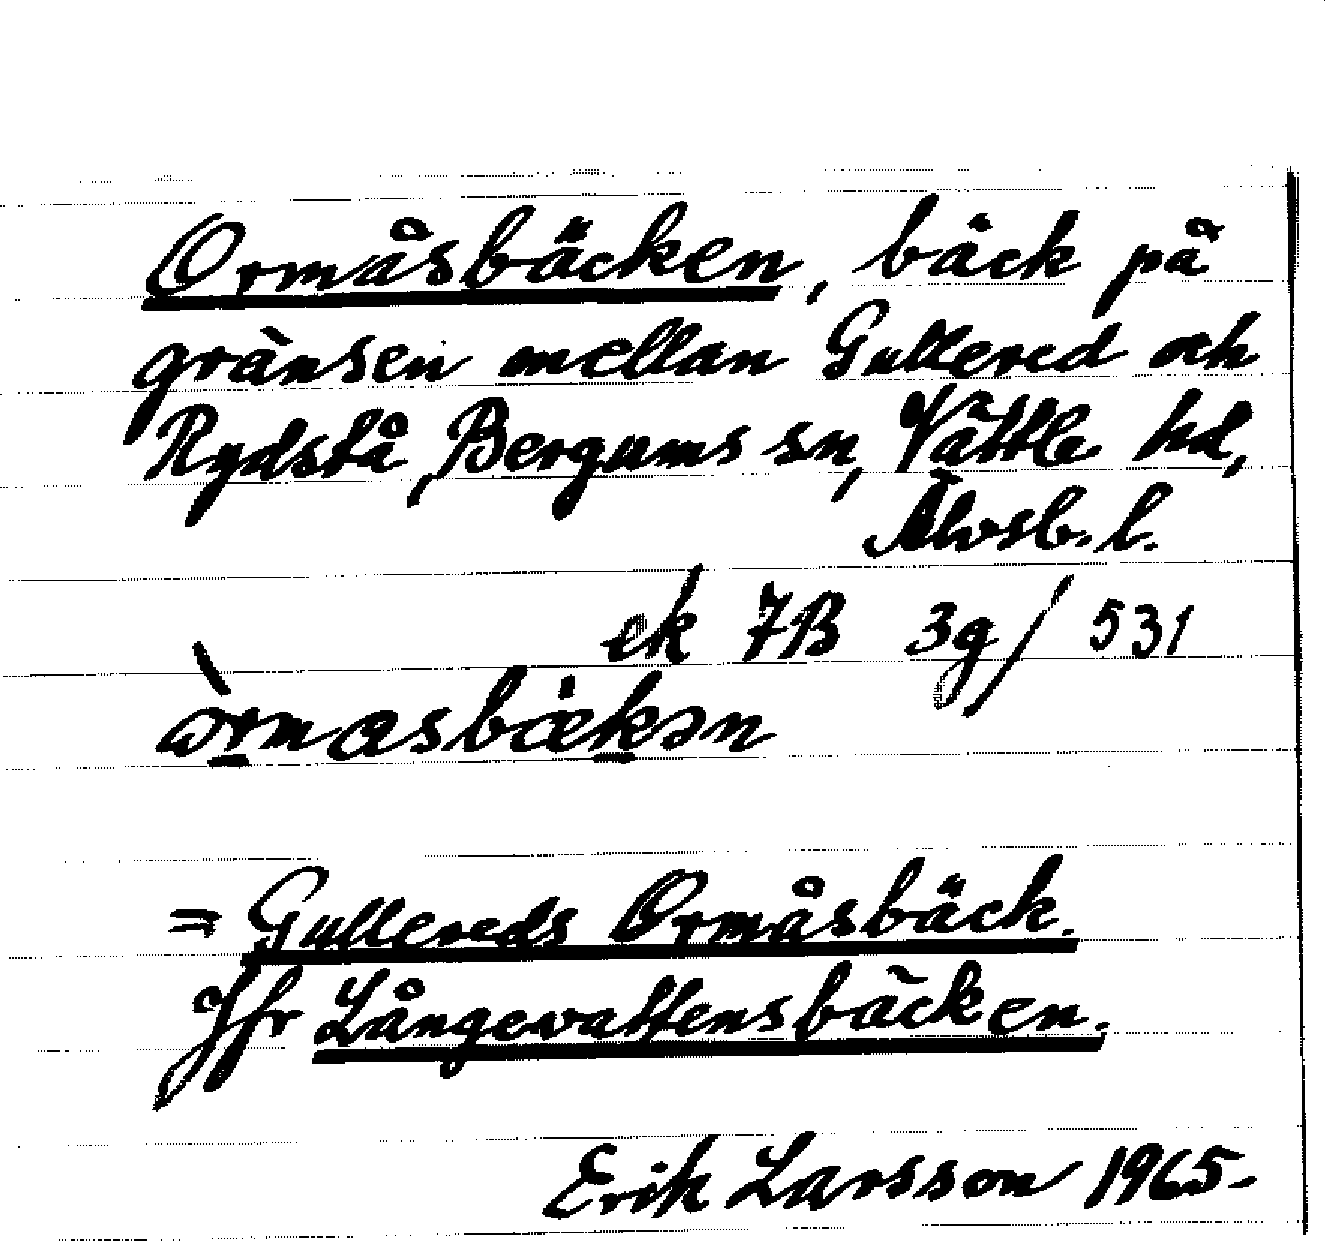 Ormåsbäcken, bäck på
gränsen mellan Gullered och
Rydstå, Bergums sn, Vättle hd,
Älvsb. l.
ek 7B 3g/531
ɷ̀rmasbækən
= Gullereds Ormåsbäck.
Jfr Långevattensbäcken.
Erik Larsson 1965-